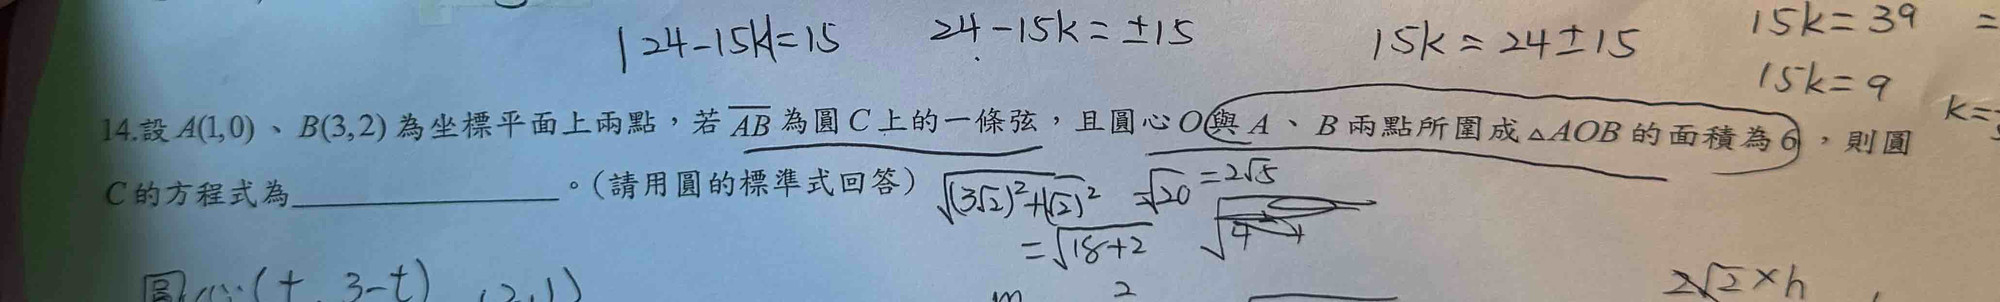 |24-15k|=15 24-15k=±15 15k=24±15 15k=39 =
15k=9
k=
14.設A(1,0)、B(3,2)為坐標平面上兩點,若AB為圓C上的一條弦,且圓心O與A、B兩點所圍成△AOB的面積為6,則圓
C的方程式為____________。(請用圓的標準式回答)
√(3√2)²+(√2)² =√20 =2√5
=√18+2
圓心:(t, 3-t) (2,1)
2
2√2×h